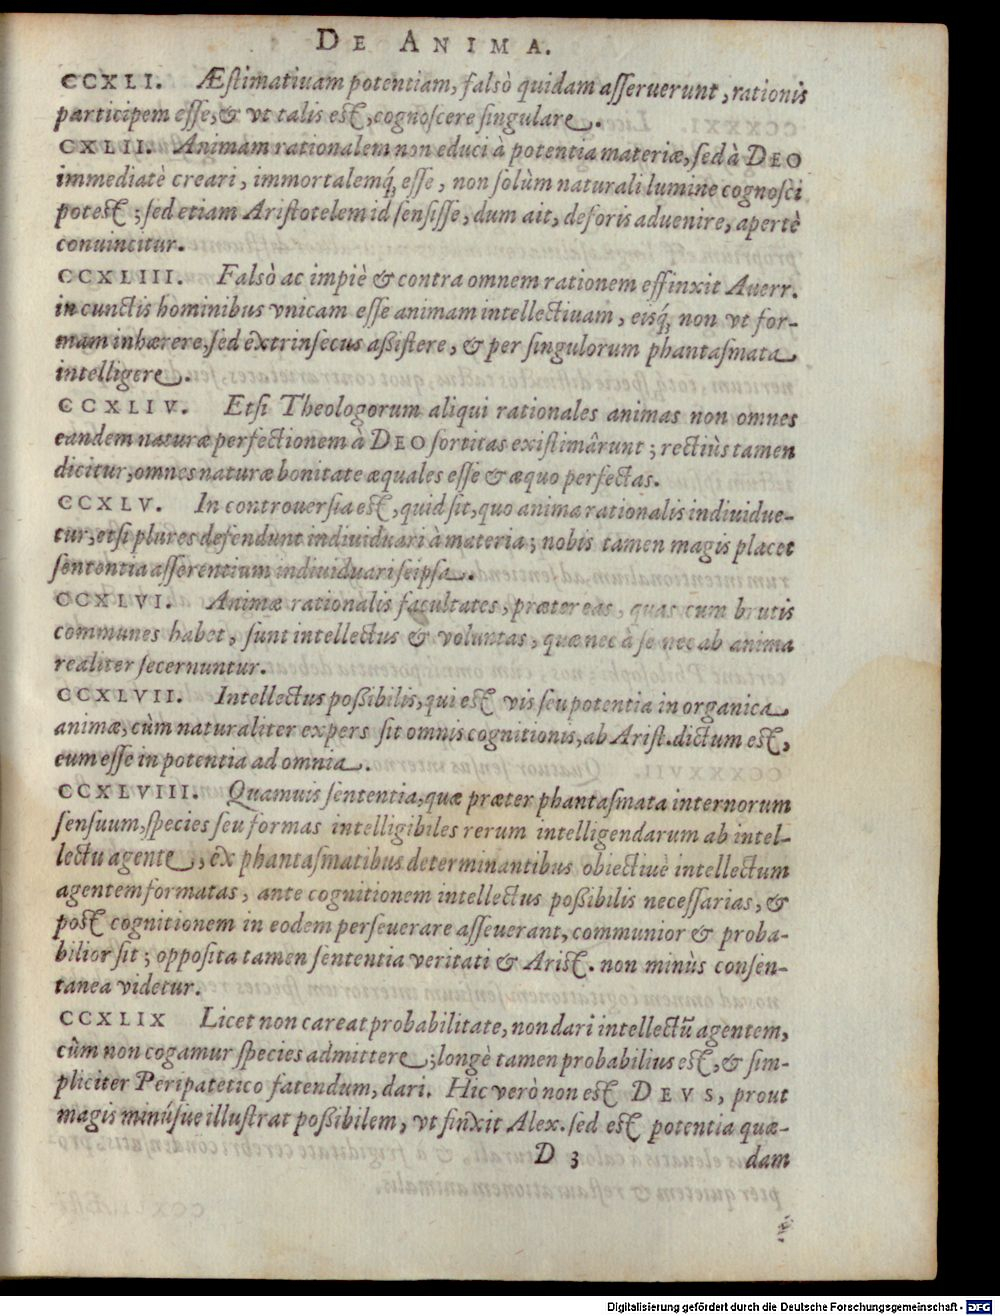 DE ANIMA.
CCXLI. Æstimatiuam potentiam, falsò quidam asseruerunt, rationis
participem esse, & vt talis est, cognoscere singulare.
CXLII. Animam rationalem non educi à potentia materiæ, sed à DEO
immediatè creari, immortalemq́; esse, non solùm naturali lumine cognosci
potest; sed etiam Aristotelem id sensisse, dum ait, deforis aduenire, apertè
conuincitur.
CCXLIII. Falsò ac impiè & contra omnem rationem effinxit Auerr.
in cunctis hominibus vnicam esse animam intellectiuam, eisq́; non vt for-
mam inhærere, sed extrinsecus assistere, & per singulorum phantasmata
intelligere.
CCXLIV. Etsi Theologorum aliqui rationales animas non omnes
eandem naturæ perfectionem à DEO sortitas existimârunt; rectiùs tamen
dicitur, omnes naturæ bonitate æquales esse & æquo perfectas.
CCXLV. In controuersia est, quid sit, quo anima rationalis indiuidue-
tur, etsi plures defendunt indiuiduari à materia; nobis tamen magis placet
sententia asserentium indiuiduari seipsa.
CCXLVI. Animæ rationalis facultates, præter eas, quas cum brutis
communes habet, sunt intellectus & voluntas, quæ nec à se nec ab anima
realiter secernuntur.
CCXLVII. Intellectus possibilis, qui est vis seu potentia inorganica
animæ, cùm naturaliter expers sit omnis cognitionis, ab Arist. dictum est,
eum esse in potentia ad omnia.
CCXLVIII. Quamuis sententia, quæ præter phantasmata internorum
sensuum, species seu formas intelligibiles rerum intelligendarum ab intel-
lectu agente, ex phantasmatibus determinantibus obiectiuè intellectum
agentem formatas, ante cognitionem intellectus possibilis necessarias, &
post cognitionem in eodem perseuerare asseuerant, communior & proba-
bilior sit; opposita tamen sententia veritati & Arist. non minùs consen-
tanea videtur.
CCXLIX Licet non careat probabilitate, non dari intellectũ agentem,
cùm non cogamur species admittere; longè tamen probabilius est, & sim-
pliciter Peripatetico fatendum, dari. Hic verò non est DEVS, prout
magis minúsue illustrat possibilem, vt finxit Alex. sed est potentia quæ-
D 3 dam
Digitalisierung gefördert durch die Deutsche Forschungsgemeinschaft - DFG